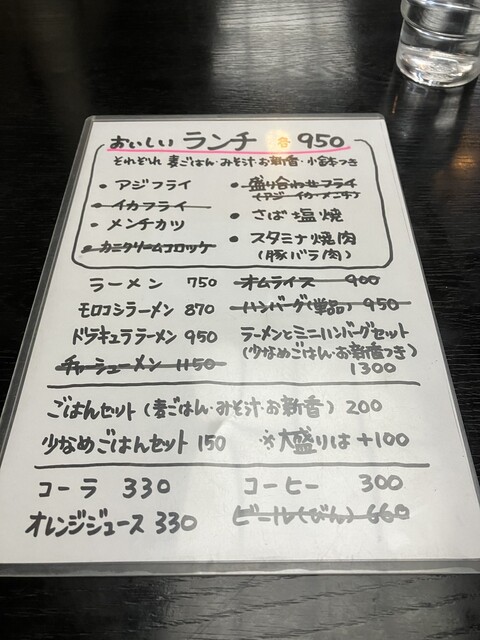 おいしい ランチ 各 950
それぞれ 麦ごはん・みそ汁・お新香・小鉢つき
• アジフライ
• イカフライ
• メンチカツ
• カニクリームコロッケ
• 盛り合わせフライ
(アジ・イカ・メンチ)
• さば塩焼
• スタミナ焼肉
(豚バラ肉)
ラーメン 750
モロコシラーメン 870
ドラキュララーメン 950
チャーシューメン 1150
オムライス 900
ハンバーグ(単品) 950
ラーメンとミニハンバーグセット
(少なめごはん・お新香つき)
1300
ごはんセット (麦ごはん・みそ汁・お新香) 200
少なめごはんセット 150 ※大盛りは +100
コーラ 330
オレンジジュース 330
コーヒー 300
ビール(びん) 660